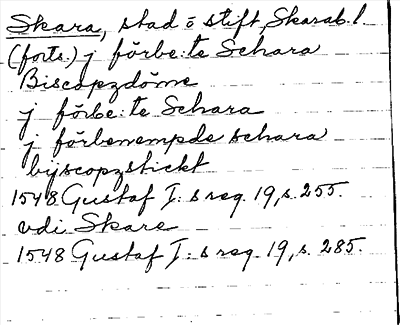 Skara, stad o stift, Skarab. l.
(forts.) j förbe:te Schara
Biscopzdöme
j förbe:te Schara
j förbenempde schara
byscopzstickt
1548 Gustaf I:s reg. 19, s. 255.
udi Skare
1548 Gustaf I:s reg. 19, s. 285.